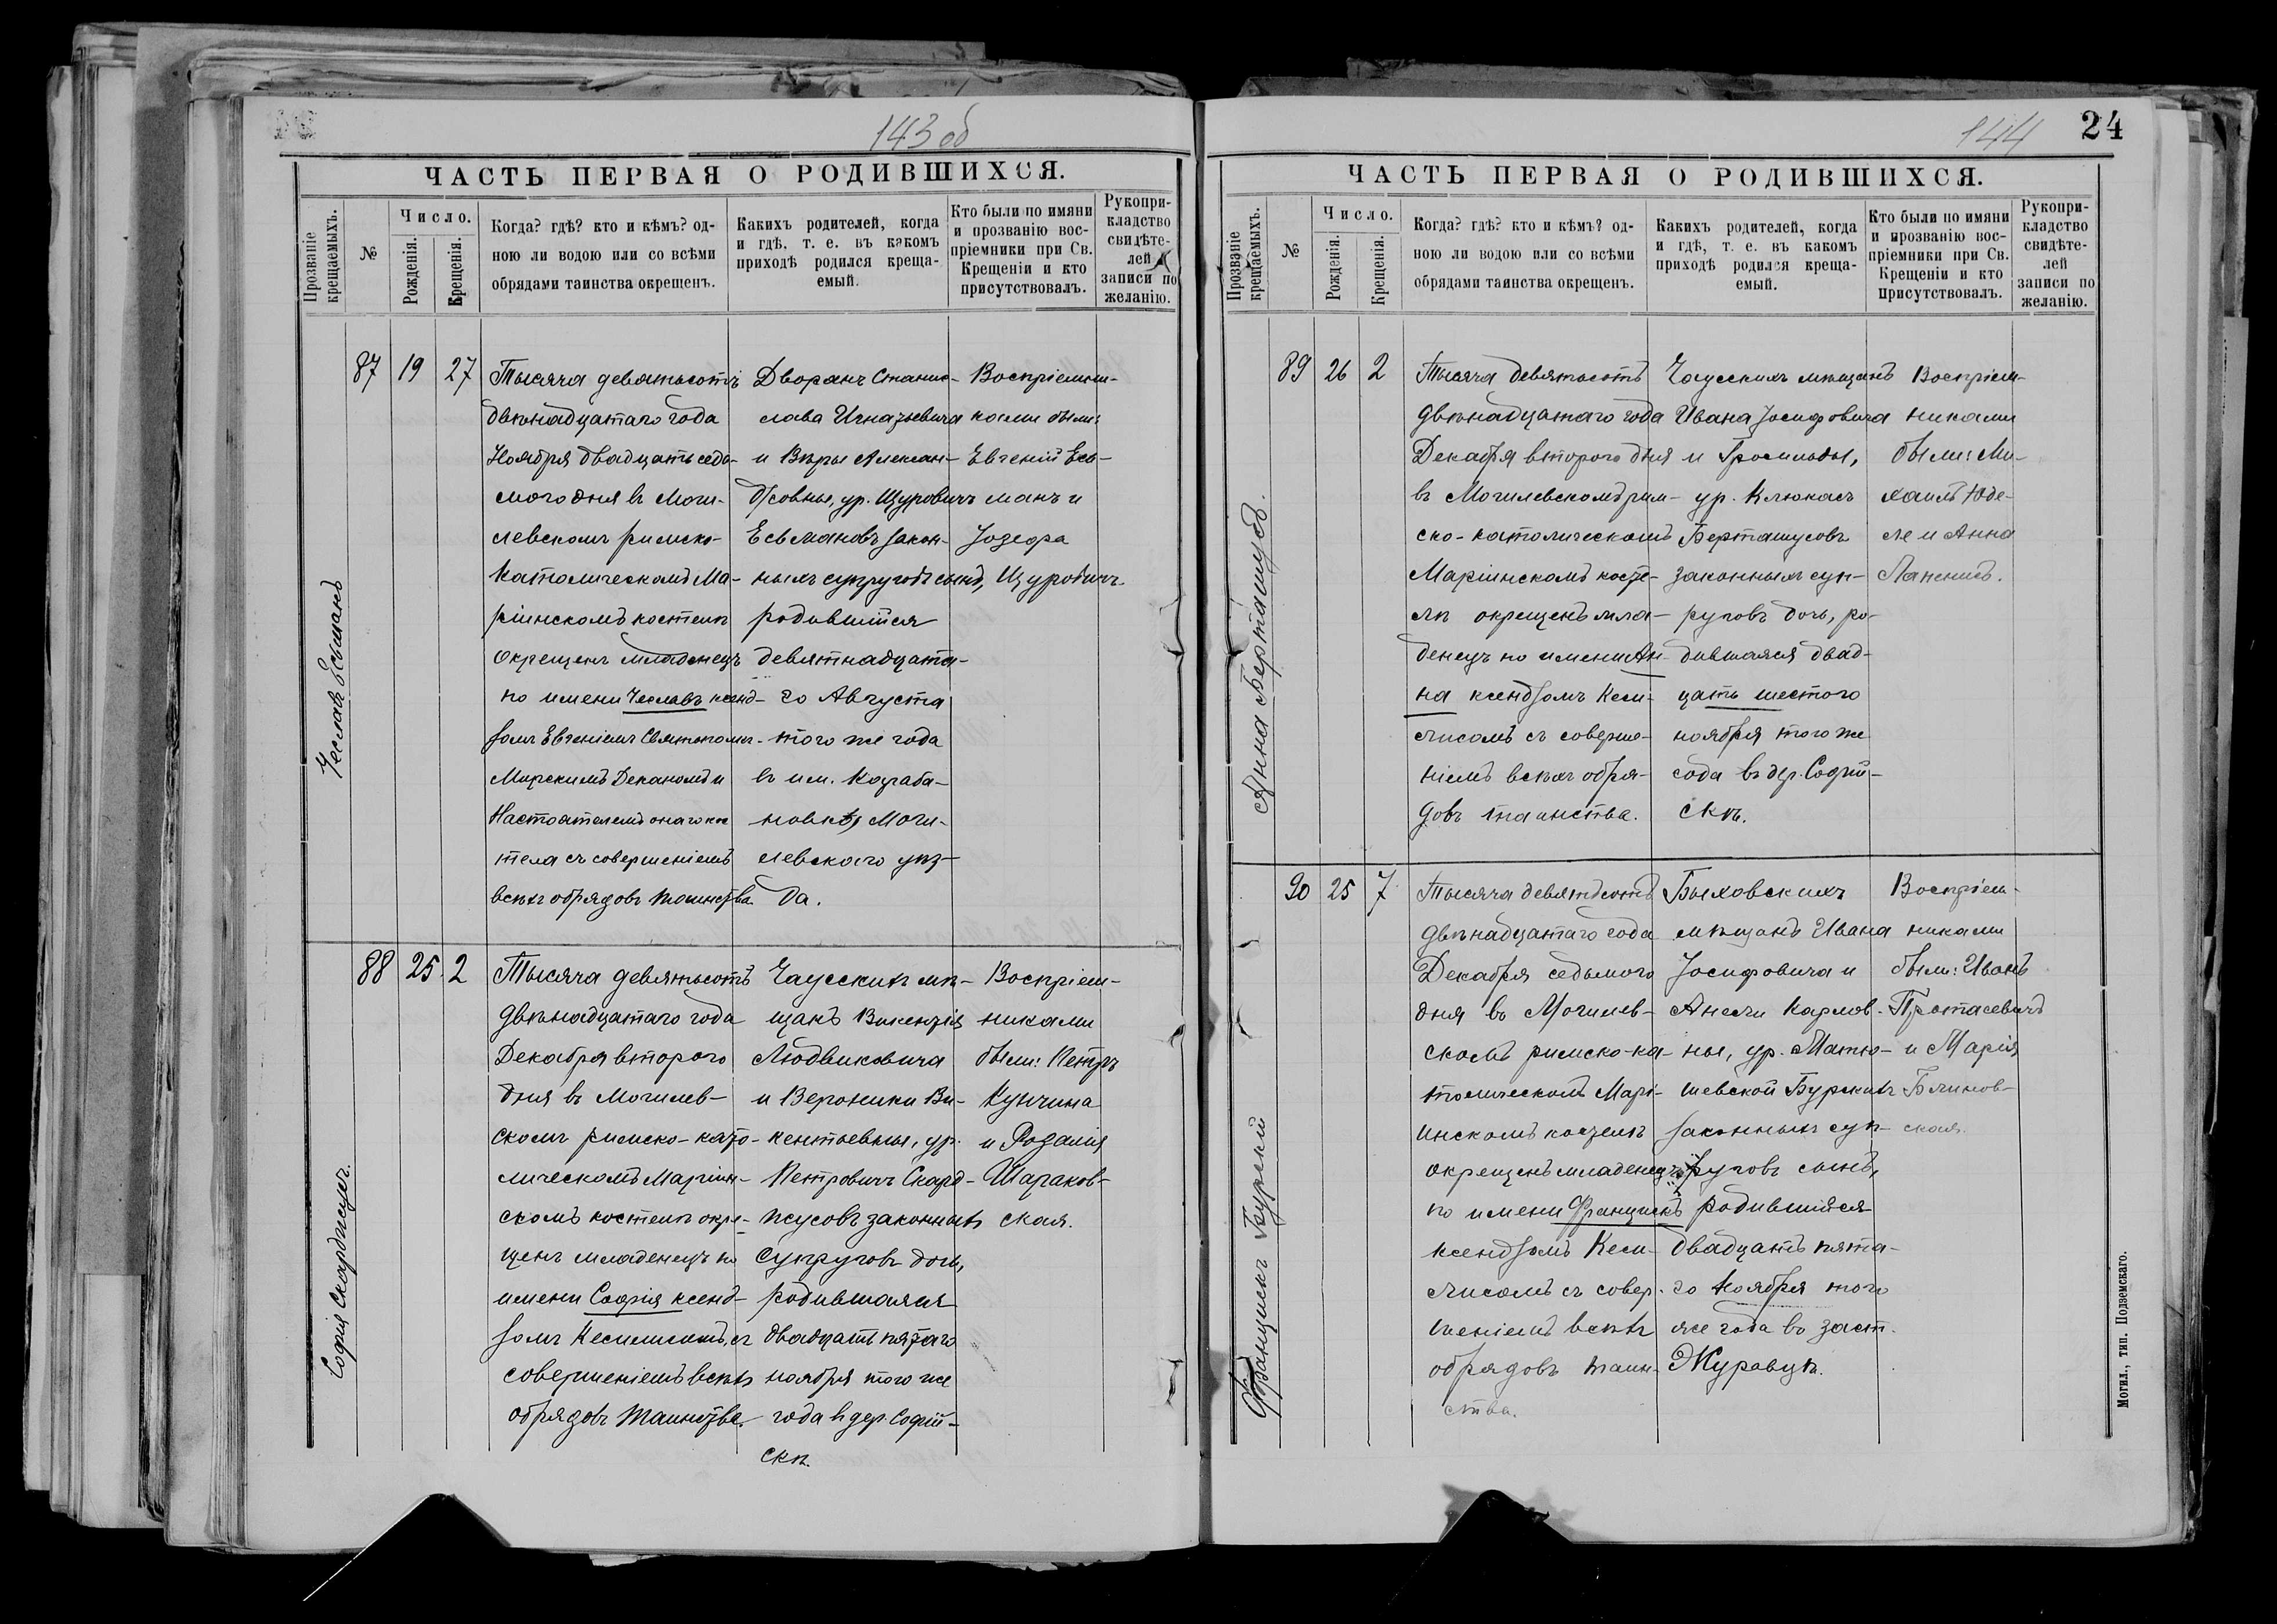 143 об
ЧАСТЬ ПЕРВАЯ О РОДИВШИХСЯ.
Прозваніе крещаемыхъ.
№
Число.
Рожденія.
Крещенія.
Когда? гдѣ? кто и кѣмъ? од-
ною ли водою или со всѣми
обрядами таинства окрещенъ.
Какихъ родителей, когда
и гдѣ, т. е. въ какомъ
приходѣ родился креща-
емый.
Кто были по имяни
и прозванію вос-
пріемники при Св.
Крещеніи и кто
присутствовалъ.
Рукопри-
кладство
свидѣте-
лей
записи по
желанію.
Чеславъ Есьманъ
87
19
27
Тысяча девятьсотъ
двѣнадцатаго года
Ноября двадцать седь-
мого дня въ Моги-
левскомъ римско-
католическомъ Ма-
ріинскомъ костелѣ
окрещенъ младенецъ
по имени Чеславъ ксенд-
зомъ Евгеніемъ Святополкъ-
Мирскимъ Деканомъ и
Настоятелемъ онаго кос
тела съ совершеніемъ
всѣхъ обрядовъ таинства.
Дворянъ Станис-
лава Игнатьевича
и Вѣры Алексан-
дровны, ур. Щуровичъ
Есьмановъ закон-
ныхъ супруговъ сынъ,
родившійся
девятнадцата-
го Августа
того же года
въ им.
Моги-
левскаго уѣз-
да.
Воспріемни-
ками были:
Евгеній Есь-
манъ и
Іозефа
Щуровичъ.
Софія Скарджусъ.
88
25
2
Тысяча девятьсотъ
двѣнадцатаго года
Декабря второго
дня въ Могилев-
скомъ римско-като-
лическомъ Маріин-
скомъ костелѣ окре-
щенъ младенецъ по
имени Софія ксенд-
зомъ Кесмисомъ, съ
совершеніемъ всѣхъ
обрядовъ таинства.
Чаусскихъ мѣ-
щанъ Викентія
Людвиковича
и Вероники Ви-
кентьевны, ур.
Петровичъ Скард-
жусовъ законныхъ
супруговъ дочь,
родившаяся
двадцать пятаго
ноября того же
года въ дер. Софій-
скѣ.
Воспріем-
никами
были: Петръ
Кунчина
и Розалія
Шараков-
ская.
144
24
ЧАСТЬ ПЕРВАЯ О РОДИВШИХСЯ.
Прозваніе крещаемыхъ.
№
Число.
Рожденія.
Крещенія.
Когда? гдѣ? кто и кѣмъ? од-
ною ли водою или со всѣми
обрядами таинства окрещенъ.
Какихъ родителей, когда
и гдѣ, т. е. въ какомъ
приходѣ родился креща-
емый.
Кто были по имяни
и прозванію вос-
пріемники при Св.
Крещеніи и кто
присутствовалъ.
Рукопри-
кладство
свидѣте-
лей
записи по
желанію.
Анна Берташусъ.
89
26
2
Тысяча девятьсотъ
двѣнадцатаго года
Декабря второго дня
въ Могилевскомъ рим-
ско-католическомъ
Маріинскомъ косте-
лѣ окрещенъ мла-
денецъ по имени Ан-
на ксендзомъ Кесм-
лисомъ съ соверше-
ніемъ всѣхъ обря-
довъ таинства.
Чаусскихъ мѣщанъ
Ивана Іосифовича
и Гросильды,
ур. Клюкасъ
Берташусовъ
законныхъ суп-
руговъ дочь, ро-
дившаяся двад-
цать шестого
ноября того же
года въ дер. Софій-
скѣ.
Воспріем-
никами
были: Ми-
хаилъ Юде-
ле и Анна
Лапенисъ.
Францискъ Бурскій
90
25
7
Тысяча девятьсотъ
двѣнадцатаго года
Декабря седьмого
дня въ Могилев-
скомъ римско-ка-
толическомъ Марі-
инскомъ костелѣ
окрещенъ младенецъ
по имени Францискъ
ксендзомъ Кесм-
лисомъ съ совер-
шеніемъ всѣхъ
обрядовъ таин-
ства.
Быховскихъ
мѣщанъ Ивана
Іосифовича и
Анели Карлов-
ны, ур. Матю-
шевской Бурскихъ
законныхъ суп-
руговъ сынъ,
родившійся
двадцать пята-
го Ноября того
же года въ заст.
Журавцѣ.
Воспріем-
никами
были: Иванъ
Протасевичъ
и Марія
Блинов-
ская.
Могил., тип. Подземскаго.